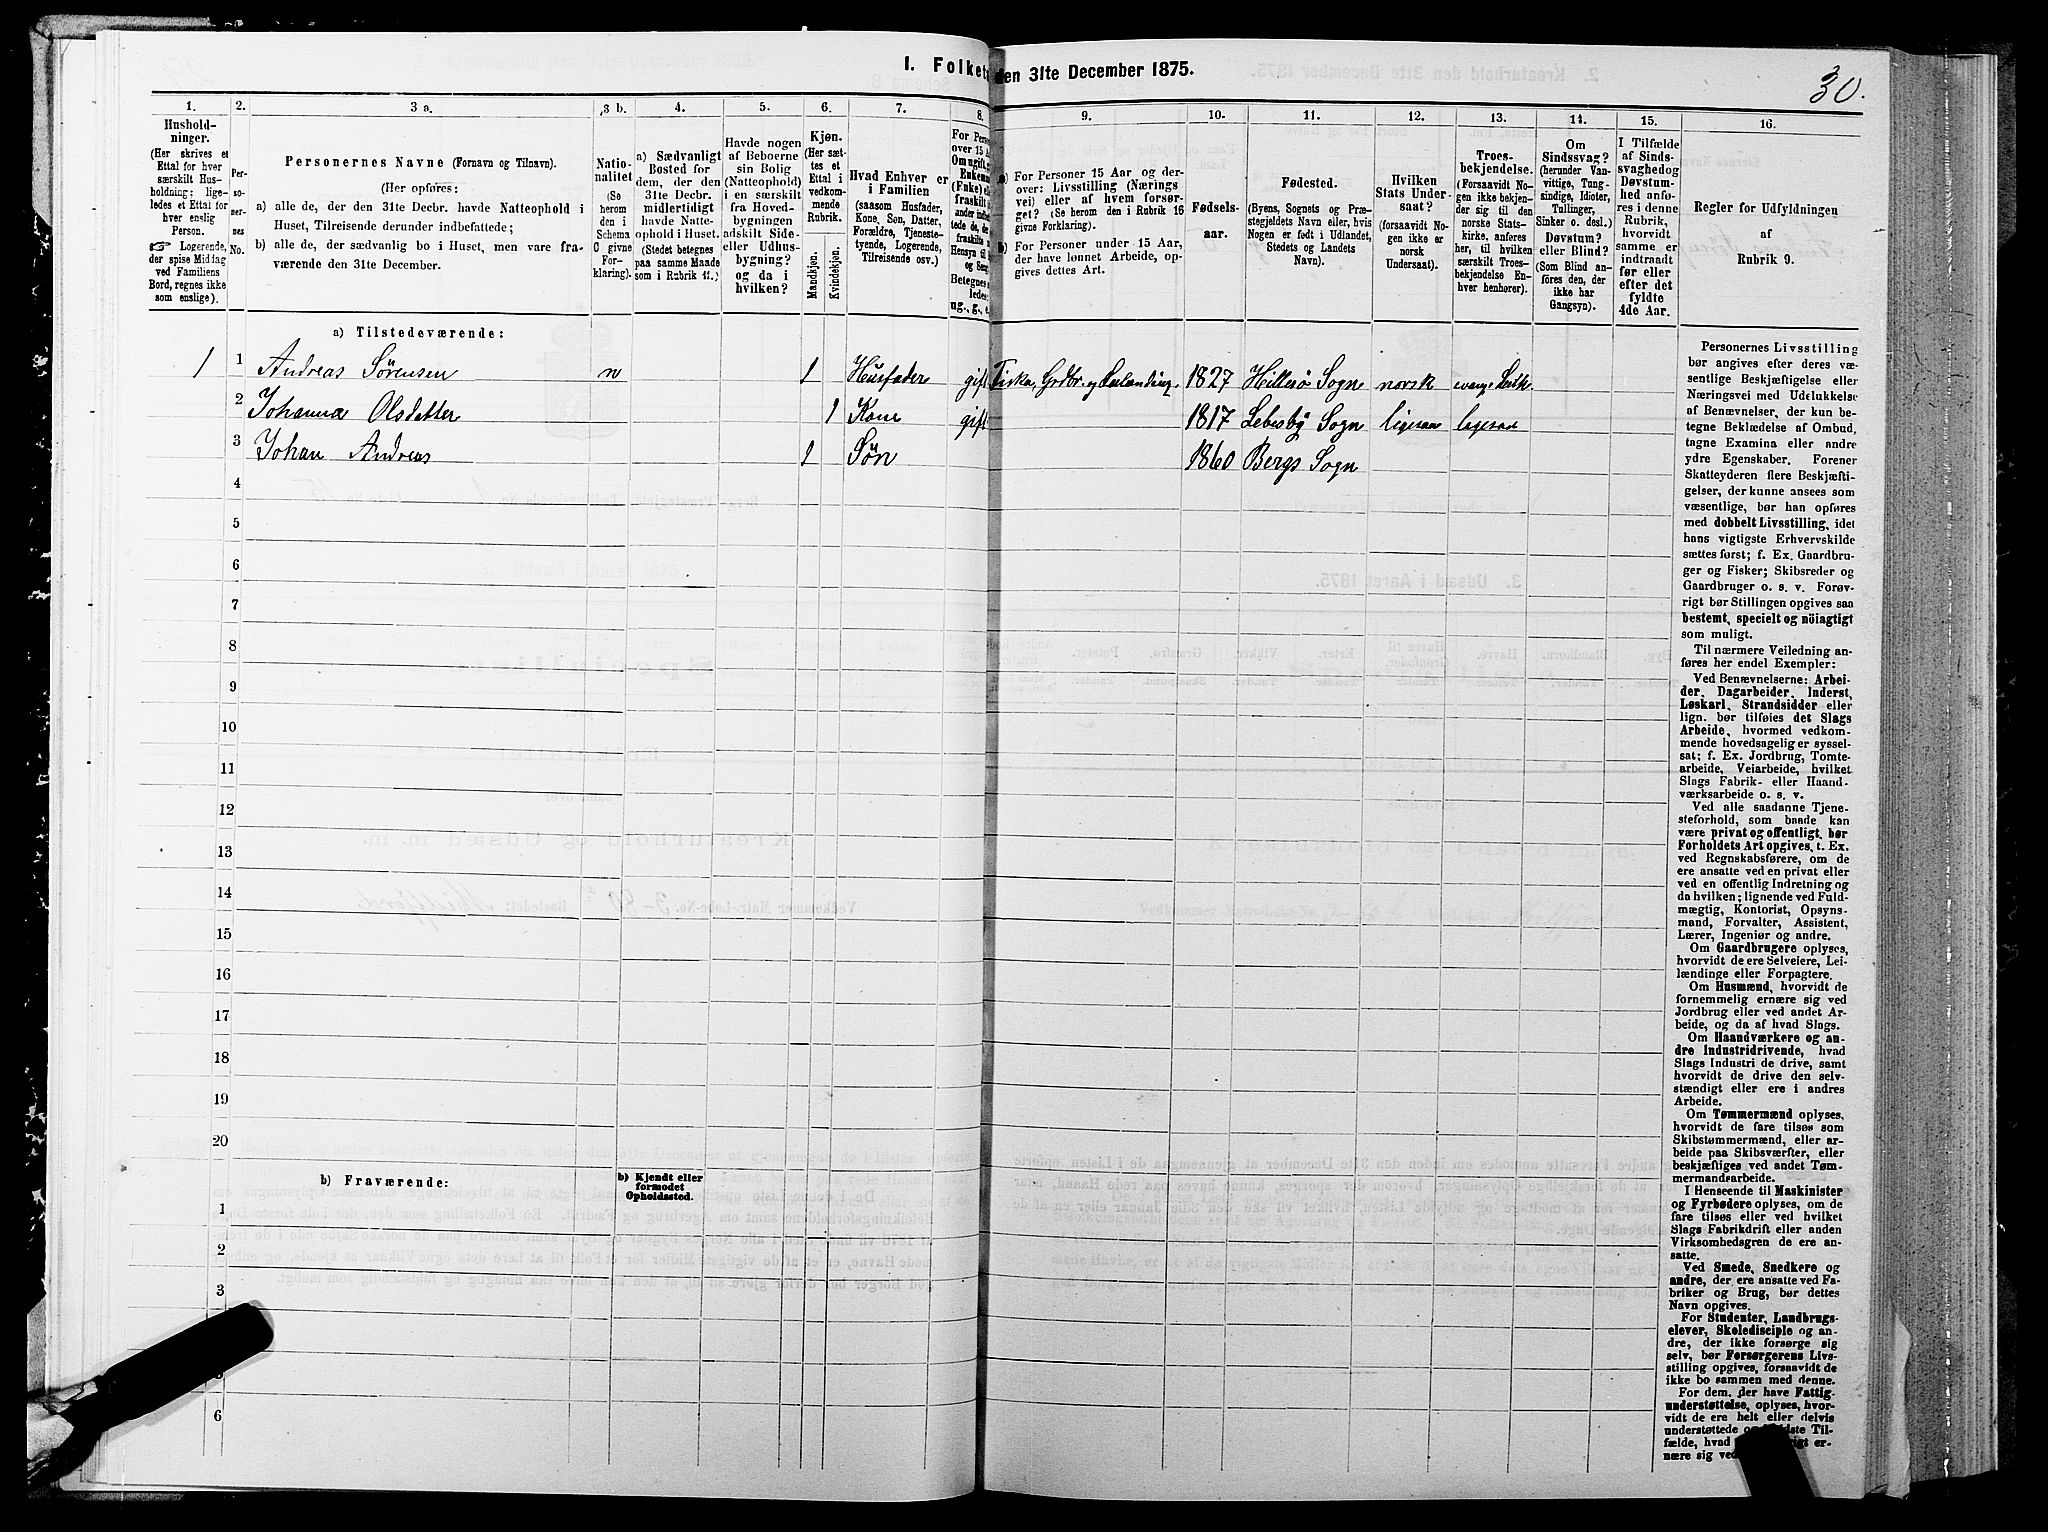 I. Folket
den 31te December 1875.
30.
1.
Hushold-
ninger.
(Her skrives et
Ettal for hver
særskilt Hus-
holdning: lige-
ledes et Ettal for
hver enslig
Person.
☞ Logerende,
der spise Middag
ved Familiens
Bord, regnes ikke
som enslige).
2.
Per-
so-
ner-
nes
No.
3 a.
Personernes Navne (Fornavn og Tilnavn).
(Her opføres:
a) alle de, der den 31te Decbr. havde Natteophold i
Huset, Tilreisende derunder indbefattede;
b) alle de, der sædvanlig bo i Huset, men vare fra-
værende den 31te December.
3 b.
Natio-
nalitet
(Se
herom
den i
Schema
C givne
For-
klaring).
4.
a) Sædvanligt
Bosted for
dem, der den
31te Decbr.
midlertidigt
havde Natte-
ophold i Huset.
(Stedet betegnes
paa samme Maade
som i Rubrik 11.)
5.
Havde nogen
af Beboerne
sin Bolig
(Natteophold)
i en særskilt
fra Hoved-
bygningen
adskilt Side-
eller Udhus-
bygning?
og da i
hvilken?
6.
Kjøn.
(Her sæt-
tes et
Ettal i
vedkom-
mende
Rubrik.
Mandkjøn.
Kvindekjøn.
7.
Hvad Enhver er
i Familien
(saasom Husfader,
Kone, Søn, Datter,
Forældre, Tjeneste-
tyende, Logerende,
Tilreisende osv.)
8.
For Pers
over 15 A
Om ugift, g
Enkema
(Enke) el
fraskilt
9.
a) For Personer 15 Aar og der-
over: Livsstilling (Nærings
vei) eller af hvem forsør-
get? (Se herom den i Rubrik 16
givne Forklaring).
b) For Personer under 15 Aar,
der have lønnet Arbeide, op-
gives dettes Art.
10.
Fødsels-
aar.
11.
Fødested.
(Byens, Sognets og Præ-
stegjeldets Navn eller, hvis
Nogen er født i Udlandet,
Stedets og Landets
Navn).
12.
Hvilken
Stats Under-
saat?
(forsaavidt No-
gen ikke er
norsk
Undersaat).
13.
Troes-
bekjendelse.
(Forsaavidt No-
gen ikke bekjen-
der sig til den
norske Stats-
kirke, anføres
her, til hvilken
særskilt Troes-
bekjendelse En-
hver henhører).
14.
Om
Sindssvag?
(herunder Van-
vittige, Tung-
sindige, Idioter,
Tullinger,
Sinker o. desl.)
Døvstum?
eller Blind?
(Som Blind an-
føres den, der
ikke har
Gangsyn).
15.
I Tilfælde
af Sinds-
svaghed og
Døvstum-
hed anfø-
res i denne
Rubrik.
hvorvidt
samme er
indtraadt
før eller
efter det
fyldte
4de Aar.
16.
Regler for Udfyldningen
af
Rubrik 9.
a) Tilstedeværende:
1 1 Andreas Sørensen n 1 Husfader gift Fisker, Grdbr. og Leilænding 1827 Hillesø Sogn norsk evang. Luth.
2 Johanna Olsdatter 1 Kone gift 1817 Lebesby Sogn ligesaa ligesaa
3 Johan Andreas 1 Søn 1860 Bergs Sogn
4
5
6
7
8
9
10
11
12
13
14
15
16
17
18
19
20
b) Fraværende:
b) Kjendt eller
formodet
Opholdssted.
1
2
3
6
Personernes Livsstilling
bør angives efter deres væ-
sentlige Beskjæftigelse eller
Næringsvei med Udelukkelse
af Benævnelser, der kun be-
tegne Beklædelse af Ombud,
tagne Examina eller andre
ydre Egenskaber. Forener
Skatteyderen flere Beskjæfti-
gelser, der kunne ansees som
væsentlige, bør han opføres
med dobbelt Livsstilling, idet
hans vigtigste Erhvervskilde
sættes først; f. Ex. Gaardbru-
ger og Fisker; Skibsreder og
Gaardbruger o. s. v. Forøv-
rigt bør Stillingen opgives saa
bestemt, specielt og nöiagtigt
som muligt.
Til nærmere Veiledning an-
føres her endel Exempler:
Ved Benævnelserne: Arbei-
der, Dagarbeider, Inderst,
Løskarl, Strandsidder eller
lign. bør tilføies det Slags
Arbeide, hvormed vedkom-
mende hovedsagelig er syssel-
sat; f. Ex. Jordbrug, Tomte-
arbeide, Veiarbeide, hvilket
Slags Fabrik- eller Haand-
værksarbeide o. s. v.
Ved alle saadanne Tjene-
steforhold, som baade kan
være privat og offentligt, bør
Forholdets Art opgives, t. Ex.
ved Regnskabsførere, om de
ere ansatte ved en privat eller
ved en offentlig Indretning og
da hvilken; lignende ved Fuld-
mægtig, Kontorist, Opsyns-
mand, Forvalter, Assistent,
Lærer, Ingeniør og andre.
Om Gaardbrugere oplyses,
hvorvidt de ere Selveiere, Lei-
lændinge eller Forpagtere.
Om Husmænd, hvorvidt de
fornemmelig ernære sig ved
Jordbrug eller ved andet Ar-
beide, og da af hvad Slags.
Om Haandværkere og an-
dre Industridrivende, hvad
Slags Industri de drive, samt
hvorvidt de drive den selv-
stændigt eller ere i andres
Arbeide.
Om Tømmermænd oplyses,
hvorvidt de fare tilsøs som
Skibstømmermænd, eller ar-
beide paa Skibsværfter, eller
beskjæftiges ved andet Tøm-
mermandsarbeide.
I Henseende til Maskinister
og Fyrbødere oplyses, om de
fare tilsøs eller ved hvilket
Slags Fabrikdrift eller anden
Virksomhedsgren de ere an-
satte.
Ved Smede, Snedkere og
andre, der ere ansatte ved Fa-
briker og Brug, bør dettes
Navn opgives.
For Studenter, Landbrugs-
elever, Skoledisciple og an-
dre, der ikke forsørge sig
selv, bør Forsørgerens Livs-
stilling opgives, forsaavidt de
ikke bo sammen med denne.
For dem, der have Fattig-
understøttelse, oplyses, hvor-
vidt de ere helt eller delvis
understøttede
fælde, hvad
nære sig ved